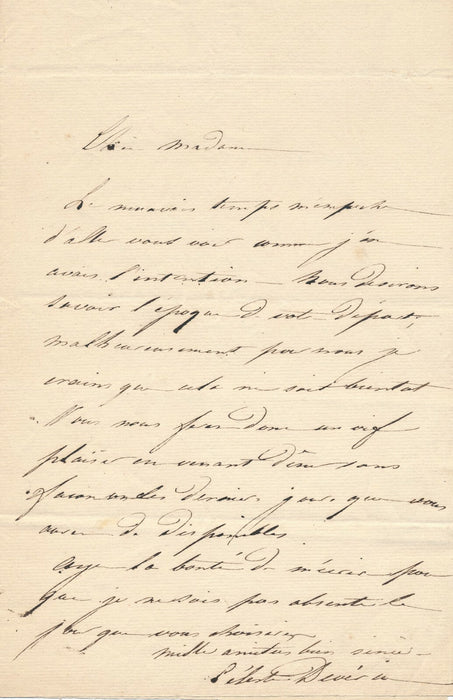 Chère Madame
Le mauvais temps m'empêche
d'aller vous voir comme j'en
avais l'intention — Nous désirons
savoir l'époque de votre départ,
malheureusement pour nous je
crains que cela ne soit bientot
Vous nous ferez donc un vif
plaisir en venant dîner sans
façon un des derniers jours que vous
aurez de disponibles
Ayez la bonté de m'écrire pour
que je ne sois pas absente le
jour que vous choisirez
mille amitiés bien sincères
Céleste Devéria